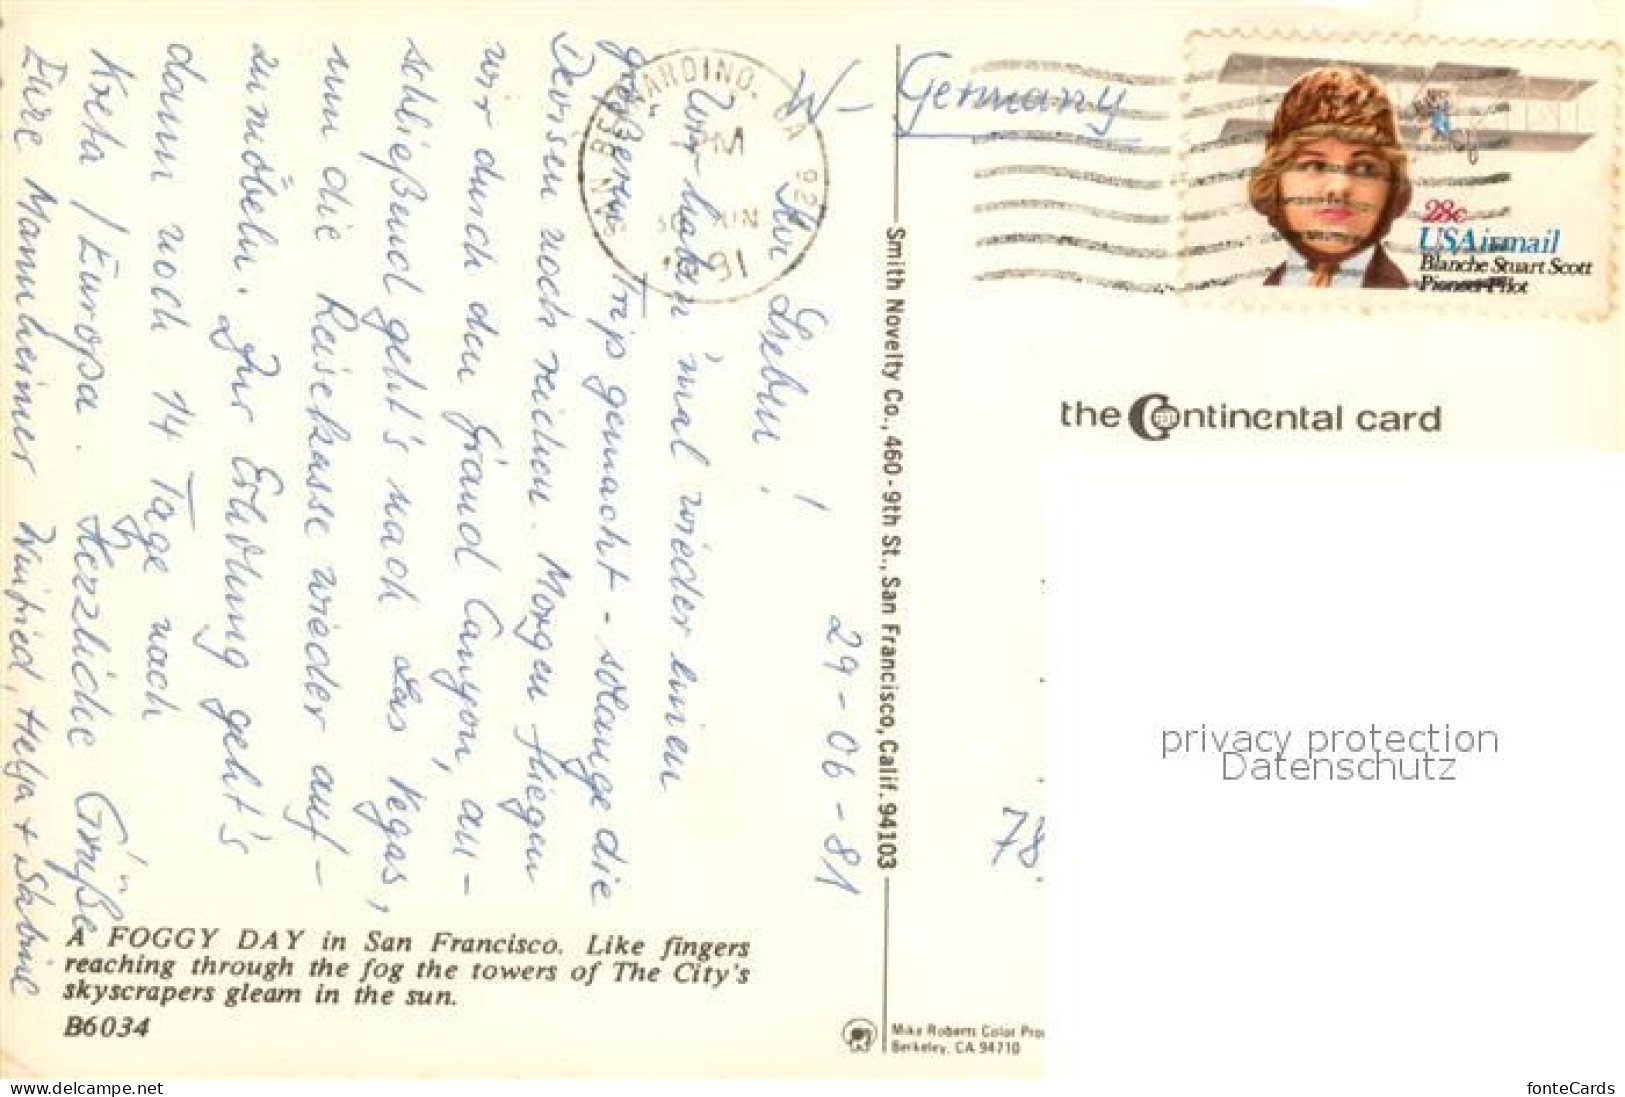 29-06-81
Ihr Lieben!
Wir haben 'mal wieder einen
größeren Trip gemacht - solange die
Devisen noch reichen. Morgen fliegen
wir durch den Grand Canyon, an-
schließend geht's nach Las Vegas,
um die Reisekasse wieder auf-
zumöbeln. Zur Erholung geht's
dann noch 14 Tage nach
Kreta / Europa. Herzliche Grüße
Eure Mannheimer Winfried, Helga + Sabine
A FOGGY DAY in San Francisco. Like fingers
reaching through the fog the towers of The City's
skyscrapers gleam in the sun.
B6034
SAN BERNARDINO, CA
PM
JUN
Smith Novelty Co., 460 - 9th St., San Francisco, Calif. 94103
W-Germany
28c
USAirmail
Blanche Stuart Scott
Pioneer Pilot
the Continental card
78
privacy protection
Datenschutz
Mike Roberts Color
Berkeley, CA 94710
www.delcampe.net
fonteCards